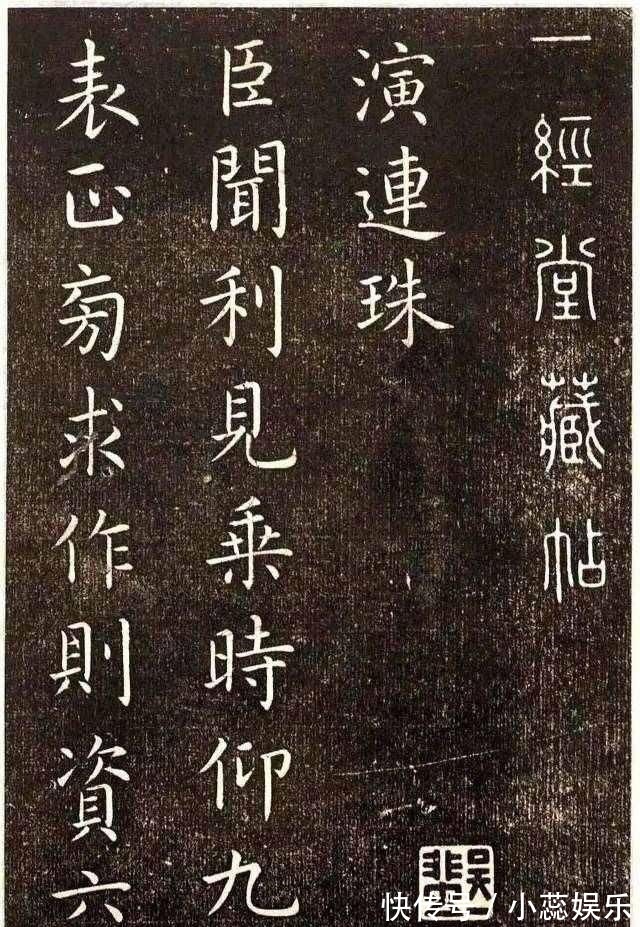 一經堂藏帖
演連珠
臣聞利見乗時仰九
表正㫄求作則資六
快传号/小蕊娱乐